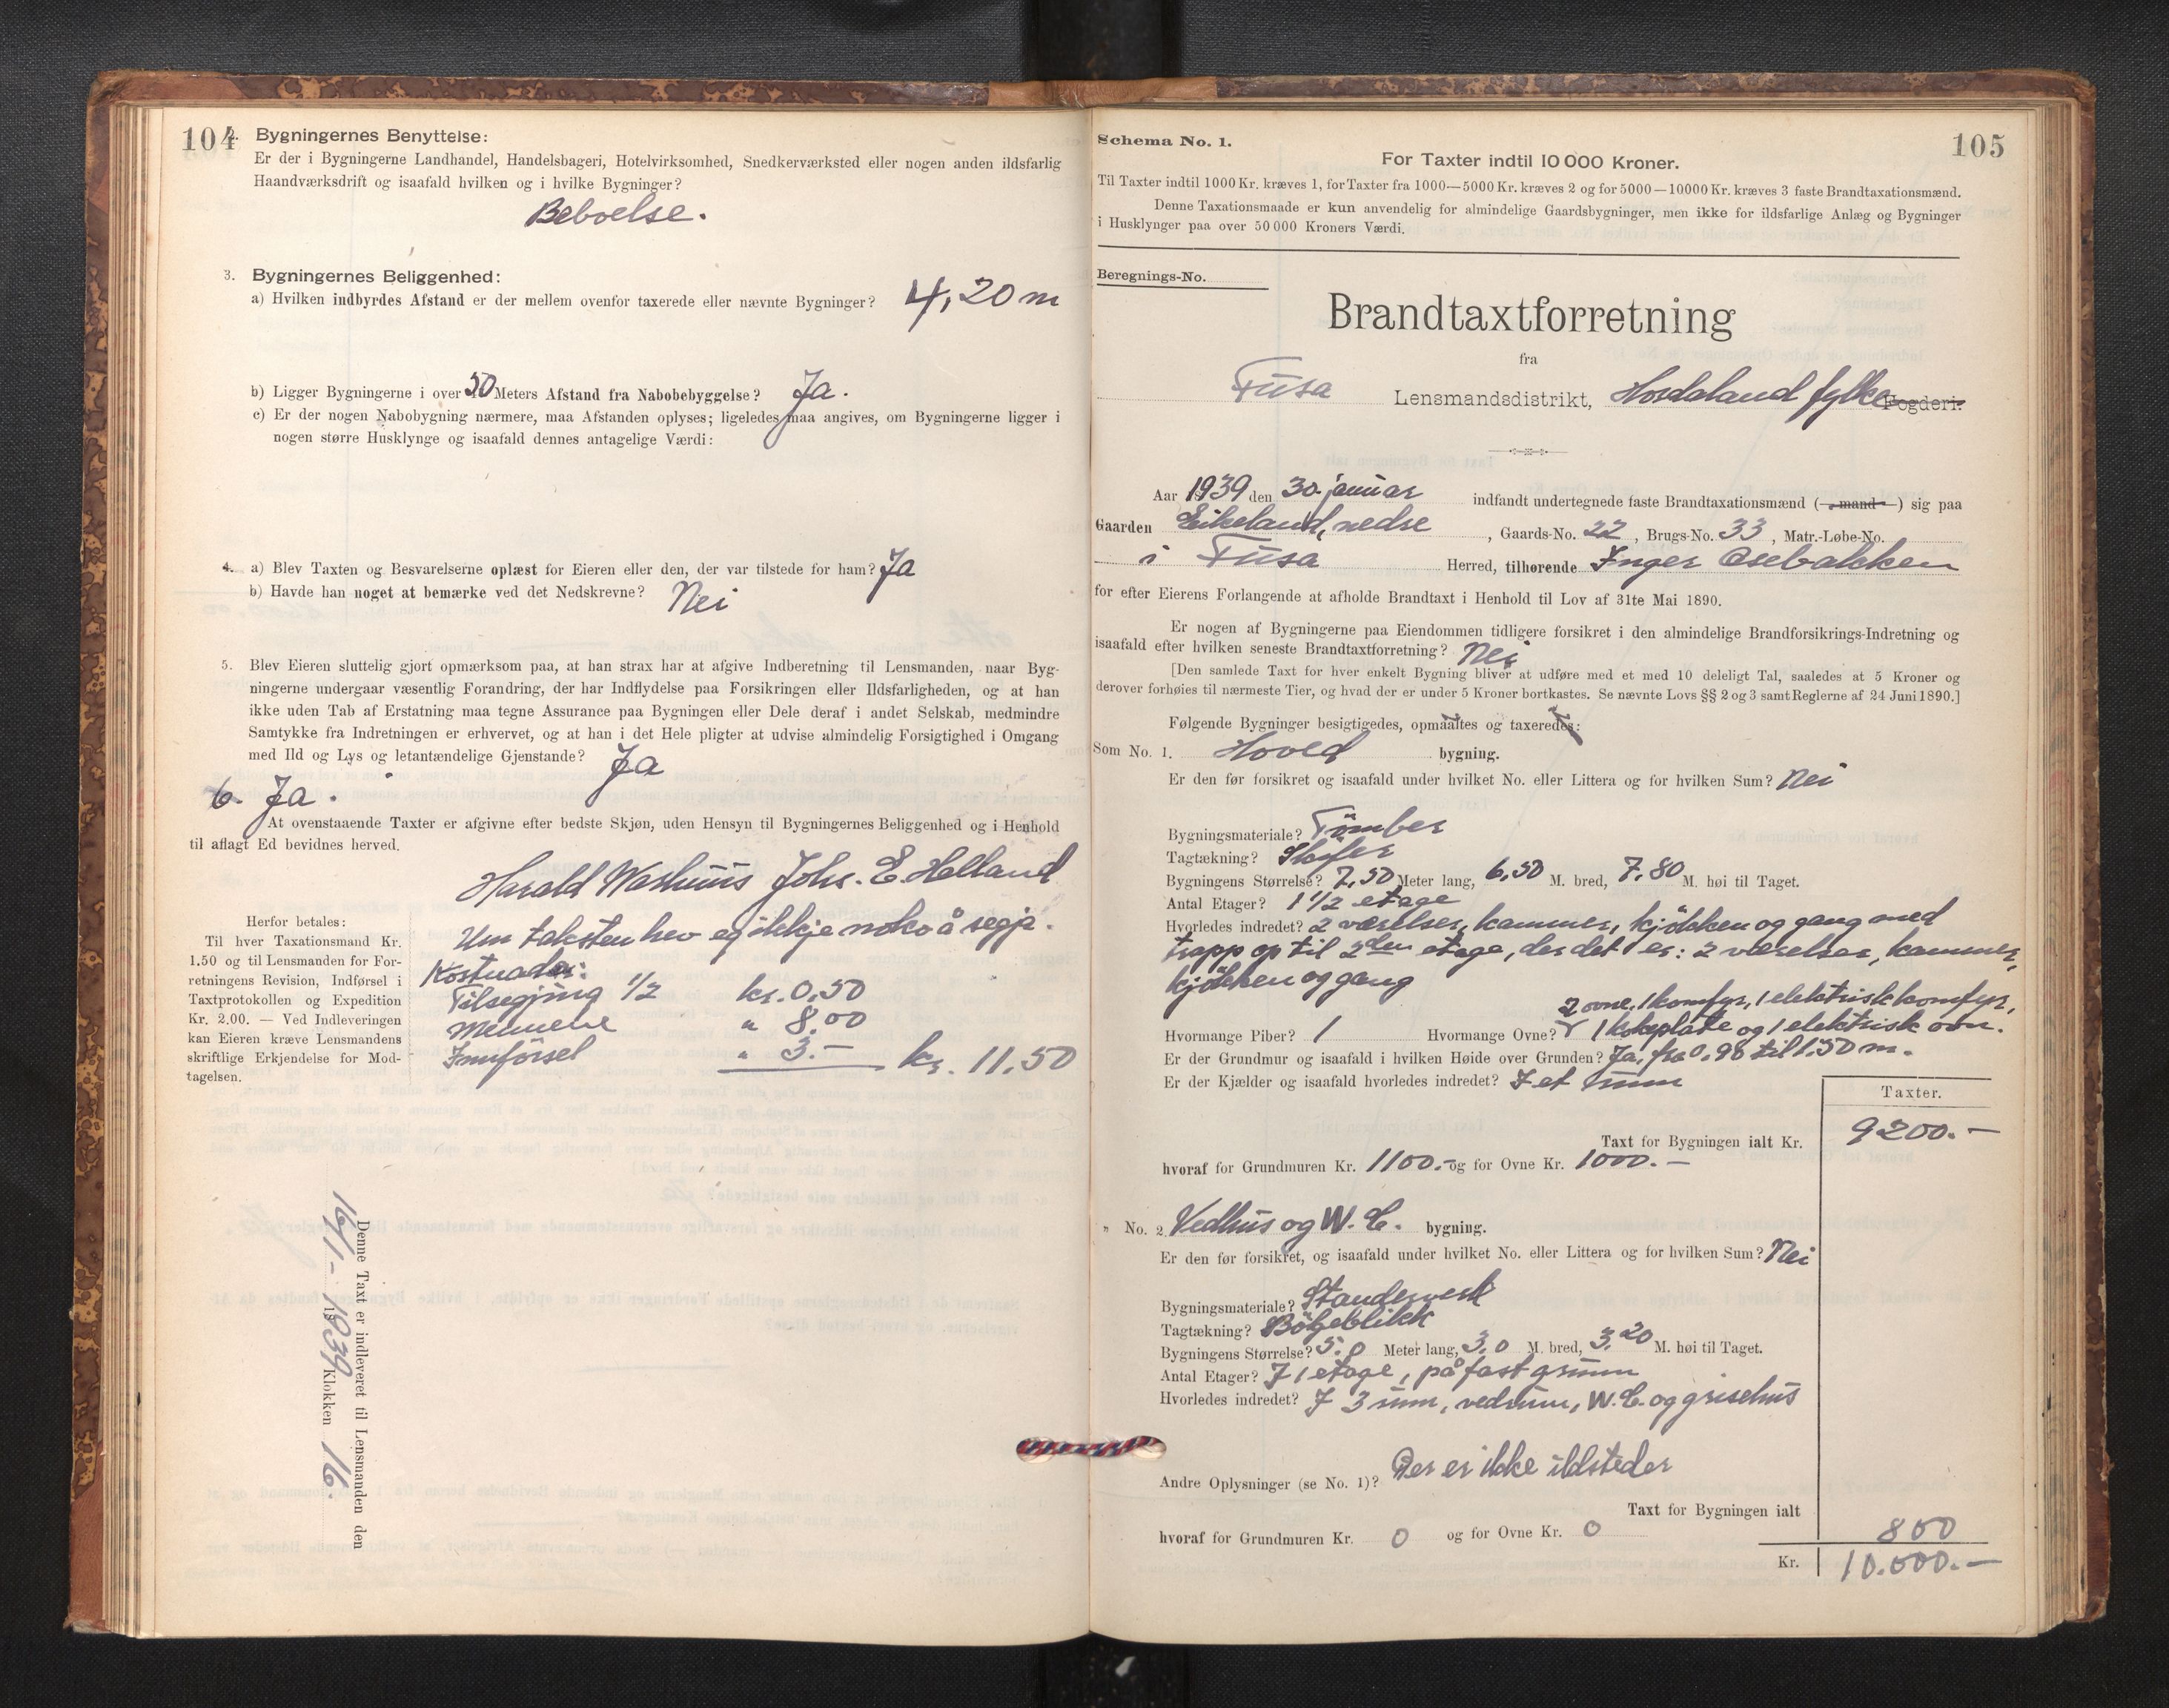 104
2. Bygningernes Benyttelse:
Er der i Bygningerne Landhandel, Handelsbageri, Hotelvirksomhed, Snedkerværksted eller nogen anden ildsfarlig
Haandværksdrift og isaafald hvilken og i hvilke Bygninger?
Beboelse.
3. Bygningernes Beliggenhed:
a) Hvilken indbyrdes Afstand er der mellem ovenfor taxerede eller nævnte Bygninger? 4,20 m
b) Ligger Bygningerne i over 50 Meters Afstand fra Nabobebyggelse? Ja.
c) Er der nogen Nabobygning nærmere, maa Afstanden oplyses; ligeledes maa angives, om Bygningerne ligger i
nogen større Husklynge og isaafald dennes antagelige Værdi:
4. a) Blev Taxten og Besvarelserne oplæst for Eieren eller den, der var tilstede for ham? Ja
b) Havde han noget at bemærke ved det Nedskrevne? Nei
5. Blev Eieren sluttelig gjort opmærksom paa, at han strax har at afgive Indberetning til Lensmanden, naar Byg-
ningerne undergaar væsentlig Forandring, der har Indflydelse paa Forsikringen eller Ildsfarligheden, og at han
ikke uden Tab af Erstatning maa tegne Assurance paa Bygningen eller Dele deraf i andet Selskab, medmindre
Samtykke fra Indretningen er erhvervet, og at han i det Hele pligter at udvise almindelig Forsigtighed i Omgang
med Ild og Lys og letantændelige Gjenstande? Ja
6. Ja.
At ovenstaaende Taxter er afgivne efter bedste Skjøn, uden Hensyn til Bygningernes Beliggenhed og i Henhold
til aflagt Ed bevidnes herved.
Harald Johs. E. Helland
Um taksten hev eg ikkje noko å segja.
Kostnader:
Tilsegjing 1/2 kr. 0,50
Mennene " 8,00
Innförsel " 3.— kr. 11.50
Herfor betales:
Til hver Taxationsmand Kr.
1.50 og til Lensmanden for For-
retningens Revision, Indførsel i
Taxtprotokollen og Expedition
Kr. 2.00. — Ved Indleveringen
kan Eieren kræve Lensmandens
skriftlige Erkjendelse for Mod-
tagelsen.
Denne Taxt er indleveret til Lensmanden den
16/1- 1939 Klokken 16.
Schema No. 1.
105
For Taxter indtil 10 000 Kroner.
Til Taxter indtil 1000 Kr. kræves 1, for Taxter fra 1000—5000 Kr. kræves 2 og for 5000—10000 Kr. kræves 3 faste Brandtaxationsmænd.
Denne Taxationsmaade er kun anvendelig for almindelige Gaardsbygninger, men ikke for ildsfarlige Anlæg og Bygninger
i Husklynger paa over 50 000 Kroners Værdi.
Beregnings-No.
Brandtaxtforretning
fra
Fusa Lensmandsdistrikt, Hordaland fylke Fogderi.
Aar 1939 den 30. januar indfandt undertegnede faste Brandtaxationsmænd (-mand-) sig paa
Gaarden Eikeland, nedre, Gaards-No. 22, Brugs-No. 33, Matr.-Løbe-No.
i Fusa Herred, tilhørende Inger Osebakken
for efter Eierens Forlangende at afholde Brandtaxt i Henhold til Lov af 31te Mai 1890.
Er nogen af Bygningerne paa Eiendommen tidligere forsikret i den almindelige Brandforsikrings-Indretning og
isaafald efter hvilken seneste Brandtaxtforretning? Nei
[Den samlede Taxt for hver enkelt Bygning bliver at udføre med et med 10 deleligt Tal, saaledes at 5 Kroner og
derover forhøies til nærmeste Tier, og hvad der er under 5 Kroner bortkastes. Se nævnte Lovs §§ 2 og 3 samt Reglerne af 24 Juni 1890.]
Følgende Bygninger besigtigedes, opmaaltes og taxeredes:
Som No. 1. Hoved bygning.
Er den før forsikret og isaafald under hvilket No. eller Littera og for hvilken Sum? Nei
Bygningsmateriale? Tömber
Tagtækning? Skifer
Bygningens Størrelse? 7,50 Meter lang, 6,50 M. bred, 7,80 M. høi til Taget.
Antal Etager? 1 1/2 etage
Hvorledes indredet? 2 værelser, kammer, kjökken og gang med
trapp op til 2den etage, der det er: 2 værelser, kammer,
kjökken og gang
2 ovne, 1 komfyr, 1 elektrisk komfyr,
Hvormange Piber? 1 Hvormange Ovne? 1 kokeplate og 1 elektrisk ovn.
Er der Grundmur og isaafald i hvilken Høide over Grunden? Ja, fra 0,98 til 1.50 m.
Er der Kjælder og isaafald hvorledes indredet? I et rum
Taxter.
Taxt for Bygningen ialt Kr. 9200.—
hvoraf for Grundmuren Kr. 1100.- og for Ovne Kr. 1000.—
" No. 2. Vedhus og W.C. bygning.
Er den før forsikret, og isaafald under hvilket No. eller Littera og for hvilken Sum? Nei
Bygningsmateriale? Standerverk
Tagtækning? Bölgeblikk
Bygningens Størrelse? 5.0 Meter lang, 3.0 M. bred, 3,20 M. høi til Taget.
Antal Etager? I 1 etage, på fast grunn
Hvorledes indredet? I 3 rum, vedrum, W.C. og grisehus
Andre Oplysninger (se No. 1)? Der er ikke ildsteder
Taxt for Bygningen ialt 800
hvoraf for Grundmuren Kr. 0 og for Ovne Kr. 0
Kr. 10.000.—